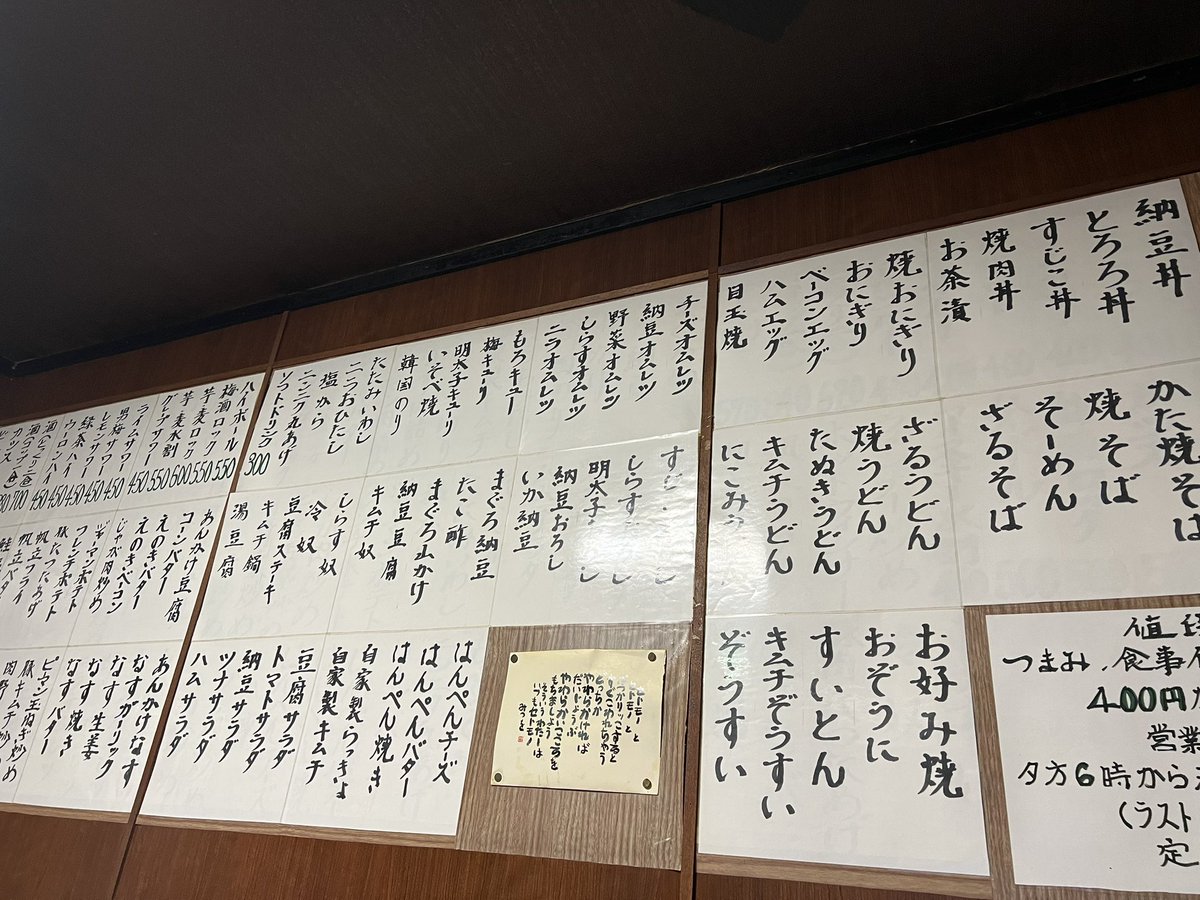 納豆丼
とろろ丼
すじこ丼
焼肉丼
お茶漬
焼おにぎり
おにぎり
ベーコンエッグ
ハムエッグ
目玉焼
かた焼そば
焼そば
そーめん
ざるそば
ざるうどん
焼うどん
たぬきうどん
キムチうどん
にこみ
お好み焼
おぞうに
すいとん
キムチぞうすい
ぞうすい
つまみ、食事
400円
営業
夕方6時から
(ラスト
定
チーズオムレツ
納豆オムレツ
野菜オムレツ
しらすオムレツ
ニラオムレツ
もろキュー
梅キューリ
明太子キューリ
いそべ焼
韓国のり
たたみいわし
ニラおひたし
塩から
ニンニク丸あげ
ソフトドリンク 300
しらす
明太子 し
納豆おろし
いか納豆
まぐろ納豆
たこ酢
まぐろ山かけ
納豆豆腐
キムチ奴
しらす奴
冷奴
豆腐ステーキ
キムチ鍋
湯豆腐
はんぺんチーズ
はんぺんバター
はんぺん焼き
自家製らっきょ
自家製キムチ
豆腐サラダ
トマトサラダ
納豆サラダ
ツナサラダ
ハムサラダ
セトモノと
セトモノと
ぶつかりっこすると
すぐこわれちゃう
どっちか
やわらかければ
だいじょうぶ
やわらかいこころを
もちましょう
そういうわたしは
いつもセトモノ
みつを
ハイボール
梅酒ロック 550
芋・麦ロック 550
芋・麦水割 600
グレープサワー 550
ライムサワー 450
男梅サワー 450
レモンサワー 450
緑茶ハイ 450
ウーロンハイ 450
あんかけ豆腐
コーンバター
えのきバター
えのきベーコン
じゃが肉炒め
ジャーマンポテト
フレンチポテト
帆立フライ
帆立バター
あんかけなす
なすガーリック
なす生姜
なす焼き
なすバター
ピーマン肉炒め
豚玉ねぎ炒め
豚キムチ炒め